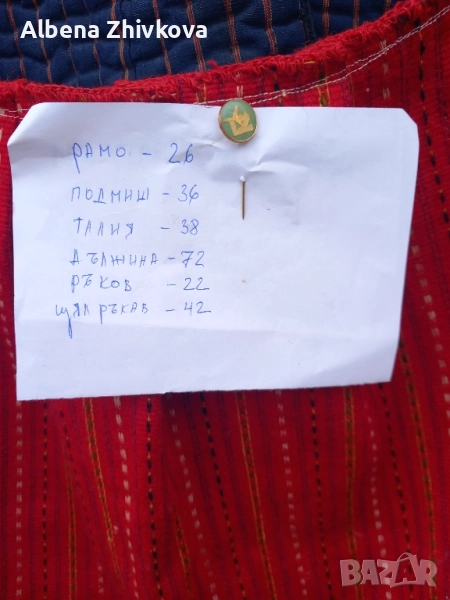 Albena Zhivkova
РАМО - 26
ПОДМИШ - 36
ТАЛИЯ - 38
ДЪЛЖИНА - 72
РЪКОВ - 22
ЦЯЛ РЪКАВ - 42
BAZAR